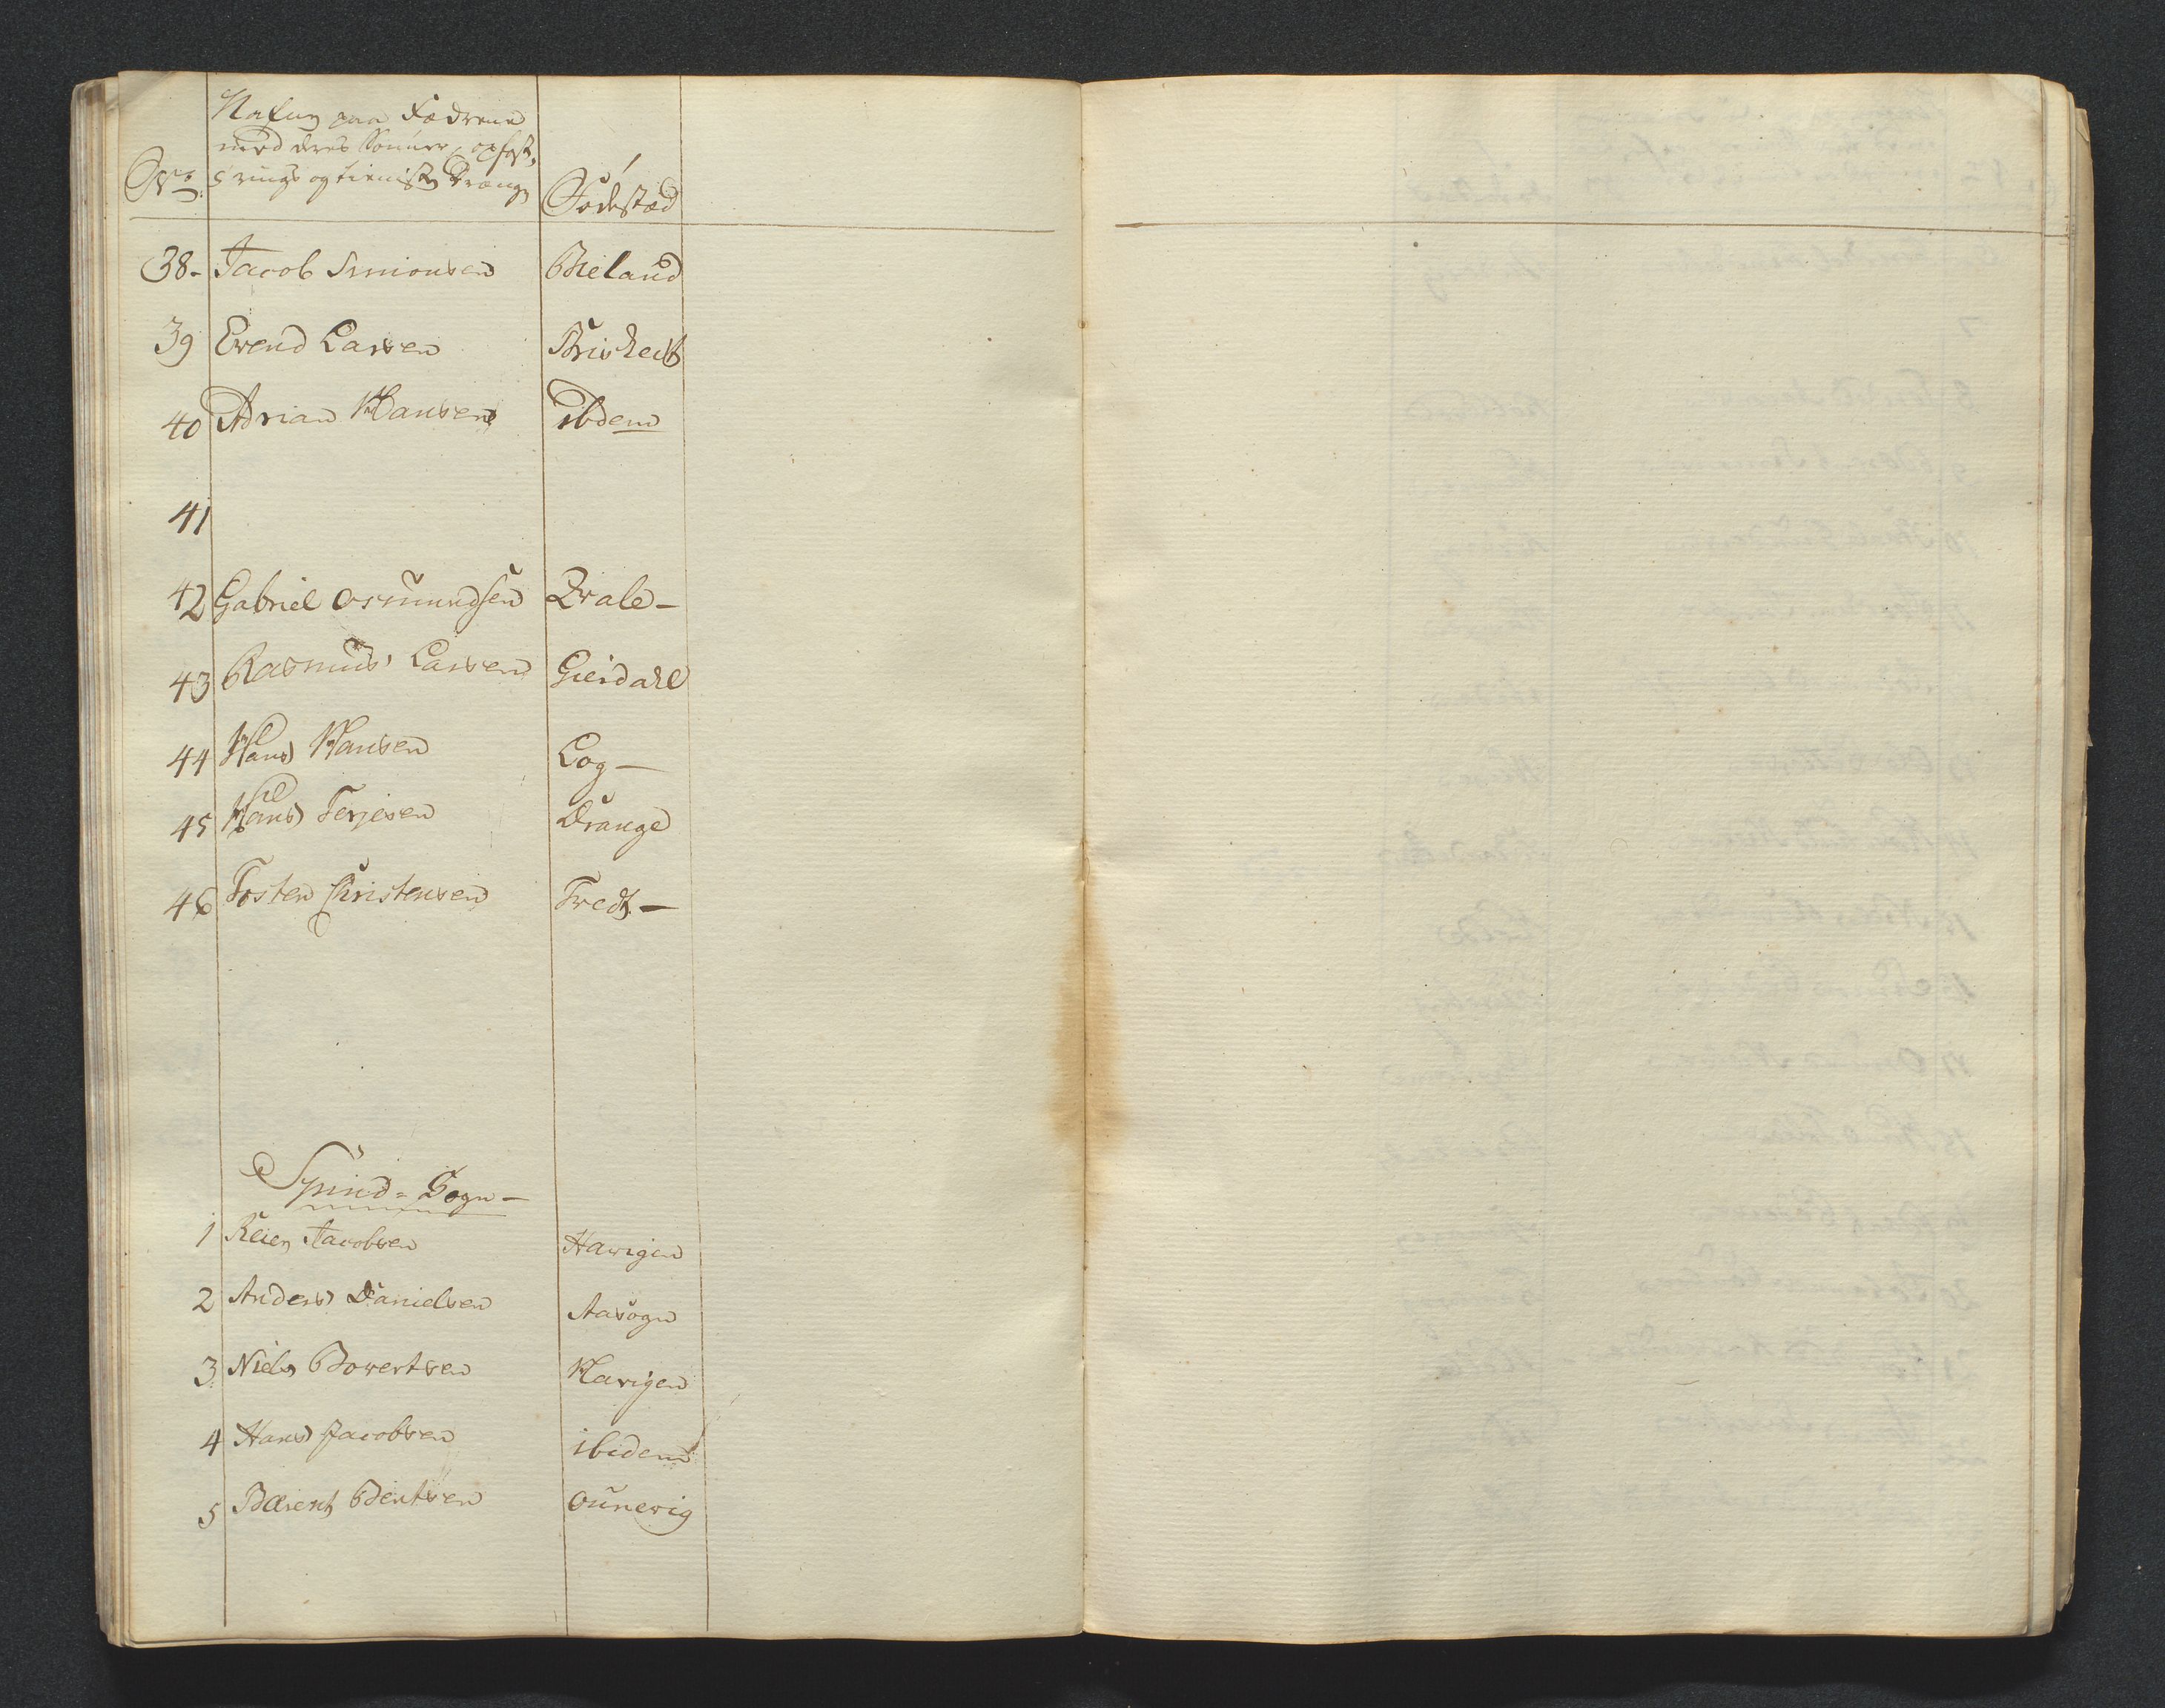 Nafn paa Fædrene
med deres Sönner, opfost,
rings og tieniste Drænge
No Födestæd
38- Jacob Simonsen Bieland
39 Evend Larsen Briseid
40 Adrian Hansen ibdem
41
42 Gabriel Osmundsen Qvale-
43 Rasmus Larsen Gierdahl
44 Hans Hansen Log-
45 Hans Terjesen Drange
46 Tosten Christensen Tredt-
Spind=Sogn-
1 Reier Jacobsen Havigen
2 Anders Danielsen Aasogn
3 Niels Bovertsen Havigen
4 Hans Jacobsen ibidem
5 Bærent Bentsen Ounevig